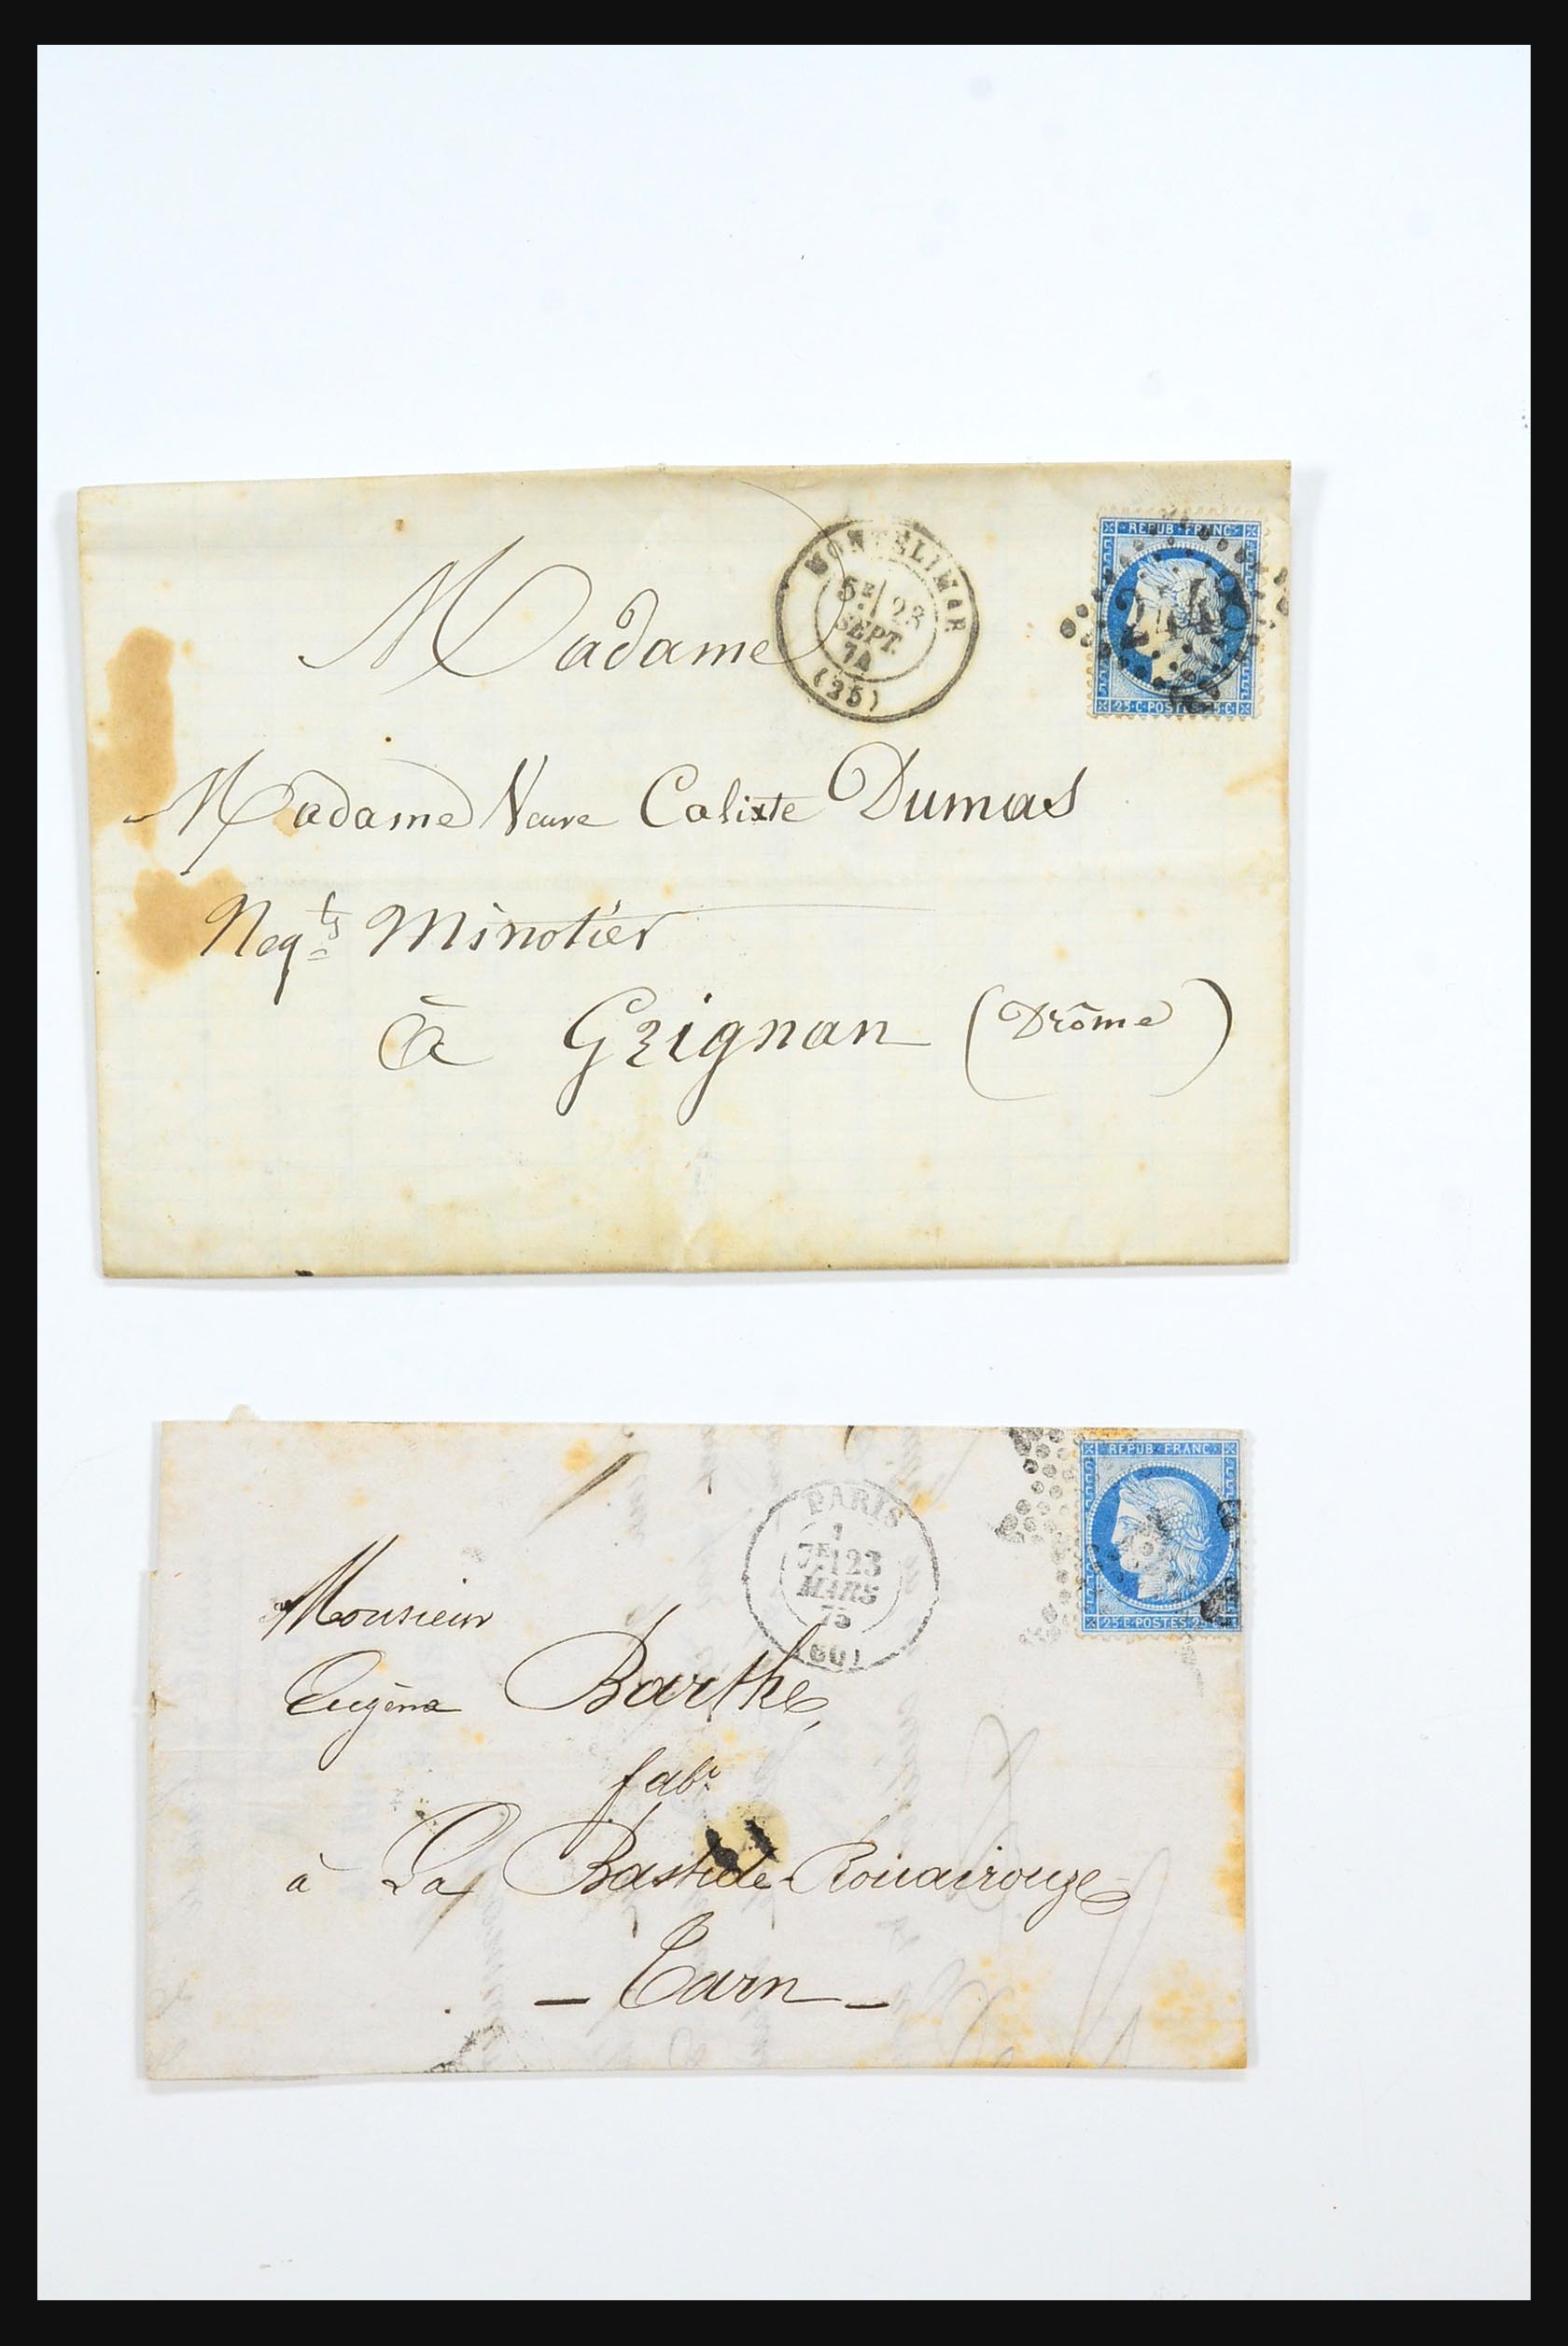 MONTELIMAR
5E 23
SEPT.
74
(25)
REPUB·FRANC
2448
25·C·POSTES
Madame
Madame Veuve Calixte Dumas
Neg ts Minotier
à Grignan (Drôme)
REPUB·FRANC
25·C·POSTES 25·C
PARIS
1
7E 23
MARS
75
(60)
Monsieur
Eugène Barthe,
fabt
à La Bastide-Rouairouze
- Tarn -